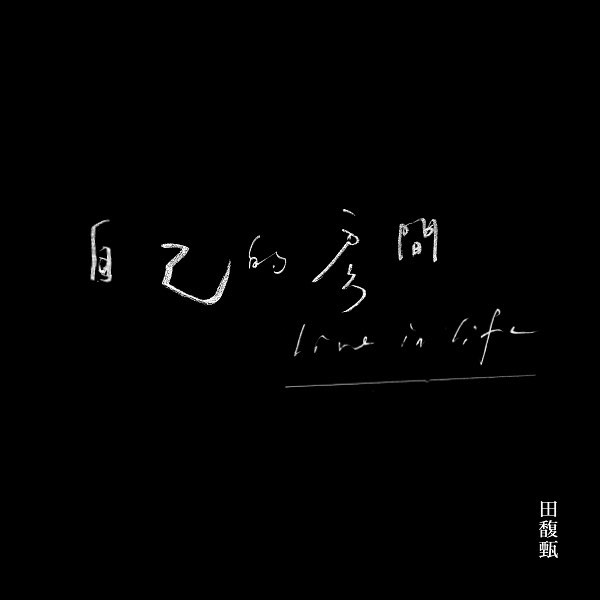 自己的房間
live in life
田馥甄